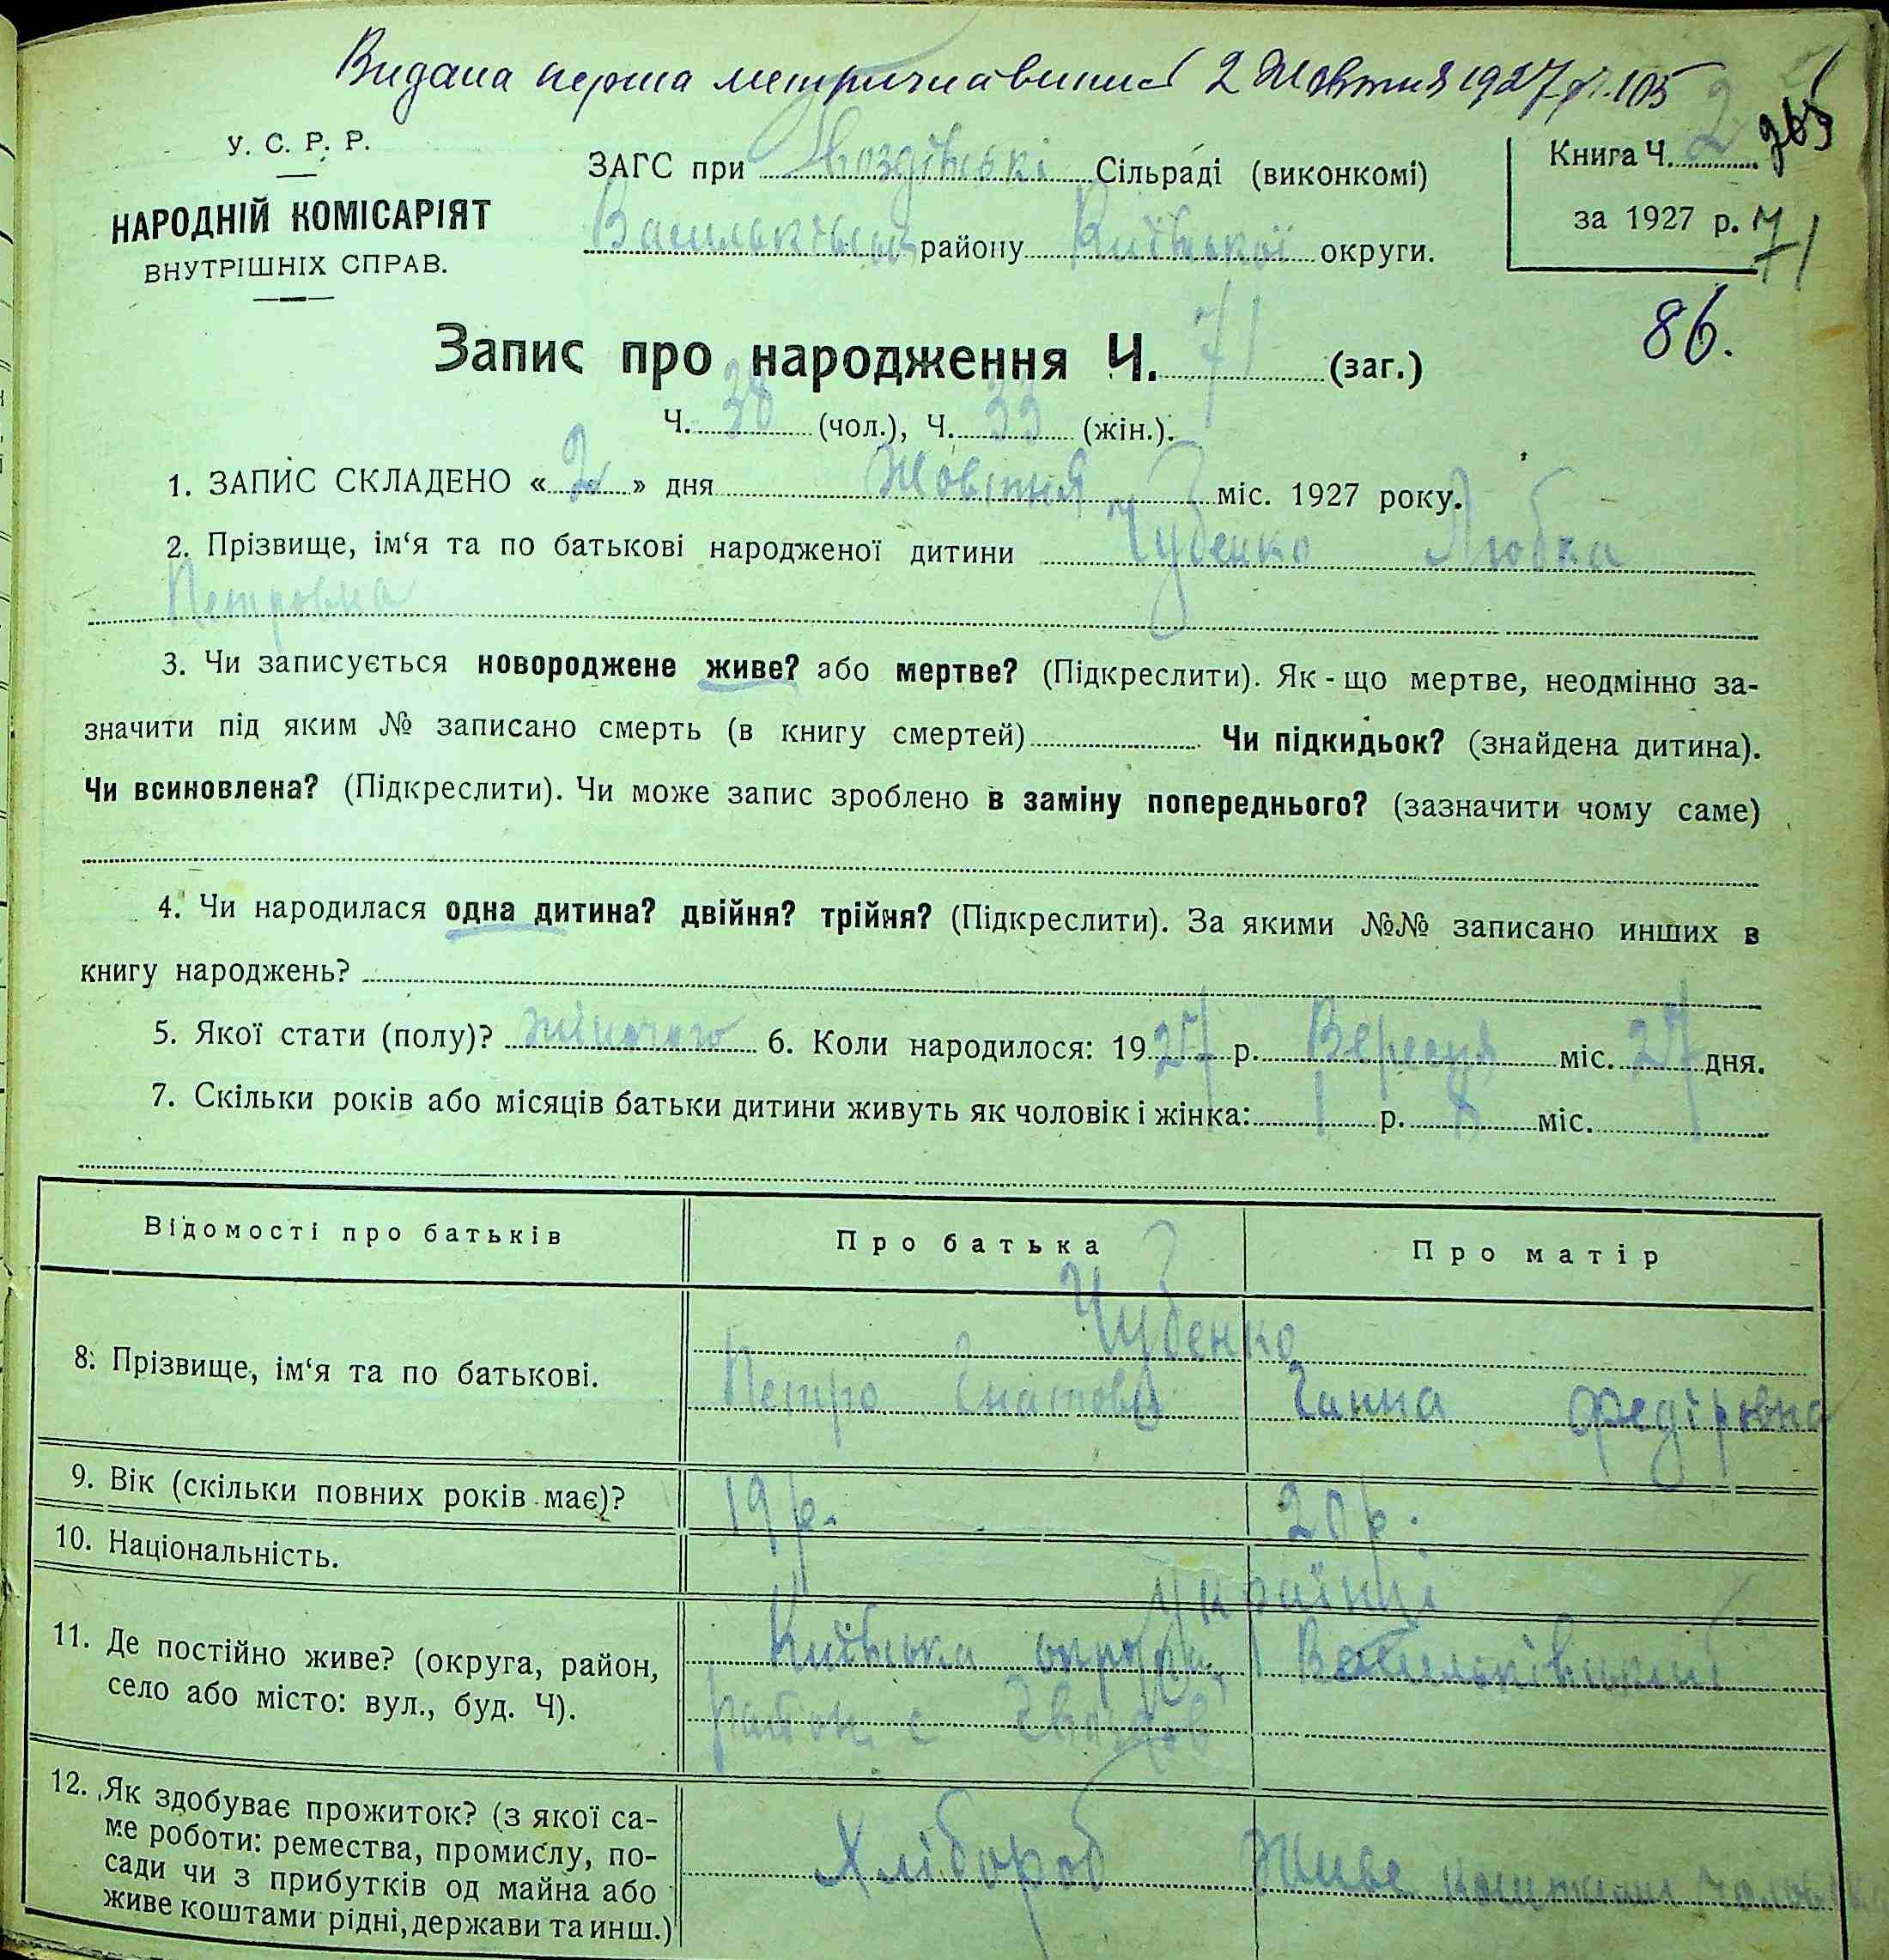 Видана перша метрична випис 2 Жовтня 1927 р. №. 105
У. С. Р. Р.
НАРОДНІЙ КОМІСАРІЯТ
ВНУТРІШНІХ СПРАВ.
ЗАГС при Гвоздівські Сільраді (виконкомі)
Васильківськ району Київської округи.
Книга Ч. 2
за 1927 р.
71
86.
Запис про народження Ч. 71 (заг.)
Ч. 38 (чол.), Ч. 33 (жін.).
1. ЗАПИС СКЛАДЕНО «2» дня Жовтня міс. 1927 року.
2. Прізвище, ім‘я та по батькові народженої дитини Чубенко Любка
Петровна
3. Чи записується новороджене живе? або мертве? (Підкреслити). Як-що мертве, неодмінно за-
значити під яким № записано смерть (в книгу смертей) Чи підкидьок? (знайдена дитина).
Чи всиновлена? (Підкреслити). Чи може запис зроблено в заміну попереднього? (зазначити чому саме)
4. Чи народилася одна дитина? двійня? трійня? (Підкреслити). За якими №№ записано инших в
книгу народжень?
5. Якої стати (полу)? жіночого 6. Коли народилося: 1927 р. Вересня міс. 27 дня.
7. Скільки років або місяців батьки дитини живуть як чоловік і жінка: 1 р. 8 міс.
Відомості про батьків Про батька Про матір
8. Прізвище, ім‘я та по батькові. Чубенко
Петро Гнатович Ганна Федіровна
9. Вік (скільки повних років має)? 19 р. 20 р.
10. Національність. українці
11. Де постійно живе? (округа, район, Київська округа, Васильківський
село або місто: вул., буд. Ч). район с Гвоздов
12. Як здобуває прожиток? (з якої са-
ме роботи: ремества, промислу, по-
сади чи з прибутків од майна або Хлібороб Живе коштами чоловіка
живе коштами рідні, держави та инш.)